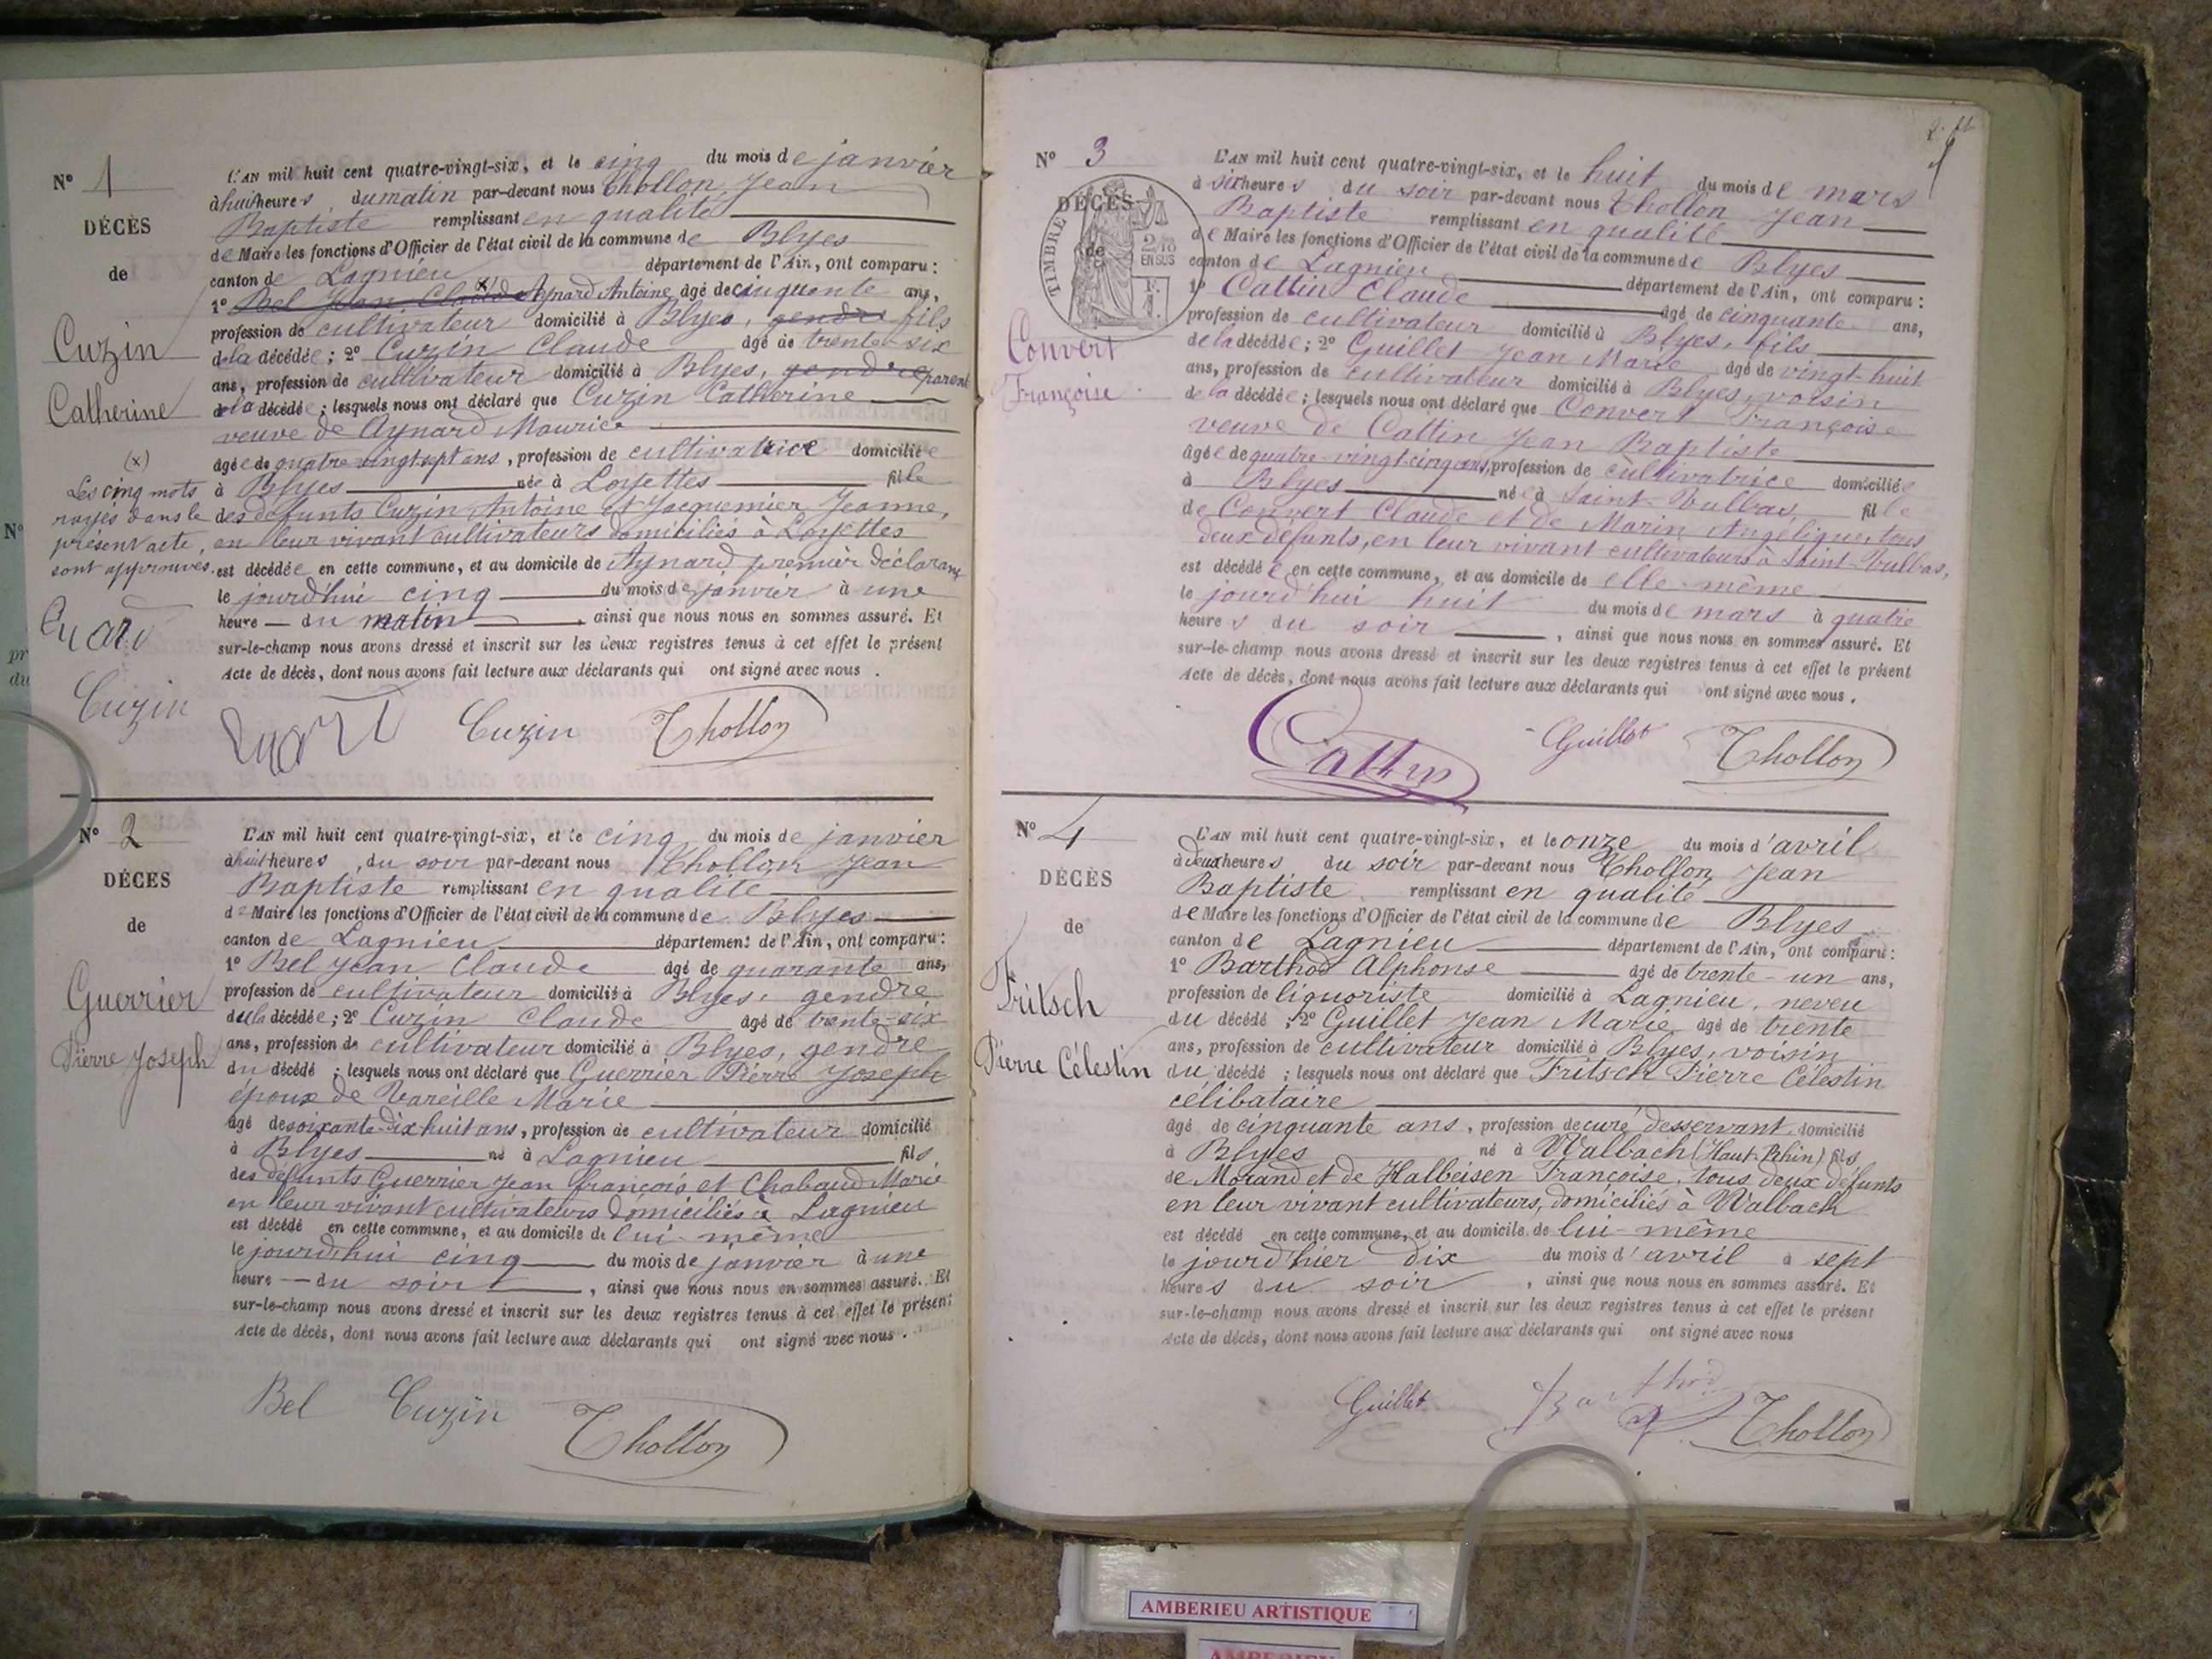 N° 1
DÉCÈS
de
Cuzin
Catherine
(x)
Les cinq mots
rayés dans le
présent acte,
sont approuvés.
Cuzin
L'AN mil huit cent quatre-vingt-six, et le cinq du mois de janvier
à huit heures, du matin par-devant nous Chollon, Jean
Baptiste remplissant en qualité
de Maire les fonctions d'Officier de l'état civil de la commune de Blyes
canton de Lagnieu département de l'Ain, ont comparu :
1° Bel Jean Claude x Aynard Antoine âgé de cinquante ans,
profession de cultivateur domicilié à Blyes, gendre fils
de la décédée ; 2° Cuzin Claude âgé de trente-six
ans, profession de cultivateur domicilié à Blyes, gendre parent
de la décédé ; lesquels nous ont déclaré que Cuzin Catherine
veuve de Aynard Maurice
âgée de quatre vingt sept ans, profession de cultivatrice domiciliée
à Blyes née à Loyettes fille
des défunts Cuzin Antoine et Jacquemier Jeanne,
en leur vivant cultivateurs domiciliés à Loyettes
est décédée en cette commune, et au domicile de Aynard premier déclarant
le jourd'hui cinq du mois de janvier à une
heure du matin, ainsi que nous nous en sommes assuré. Et
sur-le-champ nous avons dressé et inscrit sur les deux registres tenus à cet effet le présent
Acte de décès, dont nous avons fait lecture aux déclarants qui ont signé avec nous.
Cuzin Chollon
N° 2
DÉCÈS
de
Guerrier
Pierre Joseph
L'AN mil huit cent quatre-vingt-six, et le cinq du mois de janvier
à huit heures, du soir par-devant nous Chollon Jean
Baptiste remplissant en qualité
de Maire les fonctions d'Officier de l'état civil de la commune de Blyes
canton de Lagnieu département de l'Ain, ont comparu :
1° Bel Jean Claude âgé de quarante ans,
profession de cultivateur domicilié à Blyes, gendre
de la décédée ; 2° Cuzin Claude âgé de trente-six
ans, profession de cultivateur domicilié à Blyes, gendre
du décédé ; lesquels nous ont déclaré que Guerrier Pierre Joseph
époux de Vareille Marie
âgé de soixante-dix huit ans, profession de cultivateur domicilié
à Blyes né à Lagnieu fils
des défunts Guerrier Jean François et Chabaud Marie
en leur vivant cultivateurs domiciliés à Lagnieu
est décédé en cette commune, et au domicile de lui-même
le jourd'hui cinq du mois de janvier à une
heure du soir, ainsi que nous nous en sommes assuré. Et
sur-le-champ nous avons dressé et inscrit sur les deux registres tenus à cet effet le présent
Acte de décès, dont nous avons fait lecture aux déclarants qui ont signé avec nous.
Bel Cuzin Chollon
N° 3
DÉCÈS
de
TIMBRE
2/10
EN SUS
Convert
Françoise
L'AN mil huit cent quatre-vingt-six, et le huit du mois de mars
à six heures du soir par-devant nous Chollon Jean
Baptiste remplissant en qualité
de Maire les fonctions d'Officier de l'état civil de la commune de Blyes
canton de Lagnieu département de l'Ain, ont comparu :
1° Cattin Claude âgé de cinquante ans,
profession de cultivateur domicilié à Blyes, fils
de la décédée ; 2° Guillet Jean Marie âgé de vingt-huit
ans, profession de cultivateur domicilié à Blyes, voisin
de la décédée ; lesquels nous ont déclaré que Convert Françoise
veuve de Cattin Jean Baptiste
âgée de quatre-vingt-cinq ans, profession de cultivatrice domiciliée
à Blyes née à Saint-Vulbas fille
de Convert Claude et de Marin Angélique, tous
deux défunts, en leur vivant cultivateurs à Saint-Vulbas,
est décédée en cette commune, et au domicile de elle-même
le jourd'hui huit du mois de mars à quatre
heures du soir, ainsi que nous nous en sommes assuré. Et
sur-le-champ nous avons dressé et inscrit sur les deux registres tenus à cet effet le présent
Acte de décès, dont nous avons fait lecture aux déclarants qui ont signé avec nous.
Cattin Guillet Chollon
N° 4
DÉCÈS
de
Fritsch
Pierre Célestin
L'AN mil huit cent quatre-vingt-six, et le onze du mois d'avril
à deux heures du soir par-devant nous Chollon Jean
Baptiste remplissant en qualité
de Maire les fonctions d'Officier de l'état civil de la commune de Blyes
canton de Lagnieu département de l'Ain, ont comparu :
1° Barthod Alphonse âgé de trente-un ans,
profession de liquoriste domicilié à Lagnieu, neveu
du décédé ; 2° Guillet Jean Marie, âgé de trente
ans, profession de cultivateur domicilié à Blyes, voisin
du décédé ; lesquels nous ont déclaré que Fritsch Pierre Célestin
célibataire
âgé de cinquante ans, profession de curé desservant domicilié
à Blyes né à Walbach (Haut-Rhin) fils
de Morand et de Halbeisen Françoise, tous deux défunts
en leur vivant cultivateurs, domiciliés à Walbach
est décédé en cette commune, et au domicile de lui-même
le jourd'hier dix du mois d'avril à sept
heures du soir, ainsi que nous nous en sommes assuré. Et
sur-le-champ nous avons dressé et inscrit sur les deux registres tenus à cet effet le présent
Acte de décès, dont nous avons fait lecture aux déclarants qui ont signé avec nous
Guillet Barthod Chollon
AMBERIEU ARTISTIQUE
AMBERIEU